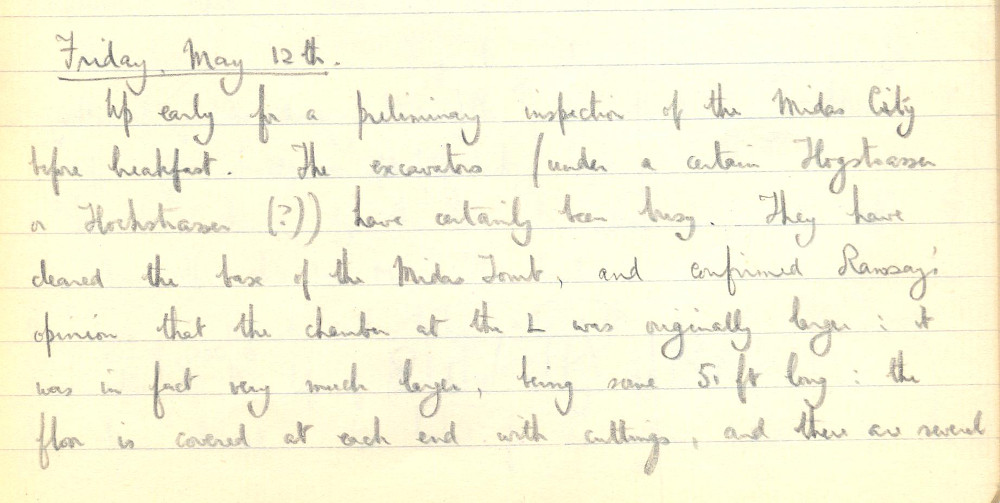 Friday, May 12th.
Up early for a preliminary inspection of the Midas City
before breakfast. The excavators (under a certain Hogstrassen
or Hochstrassen (?)) have certainly been busy. They have
cleared the base of the Midas Tomb, and confirmed Ramsay's
opinion that the chamber at the L was originally larger: it
was in fact very much larger, being some 51 ft long: the
floor is covered at each end with cuttings, and there are several